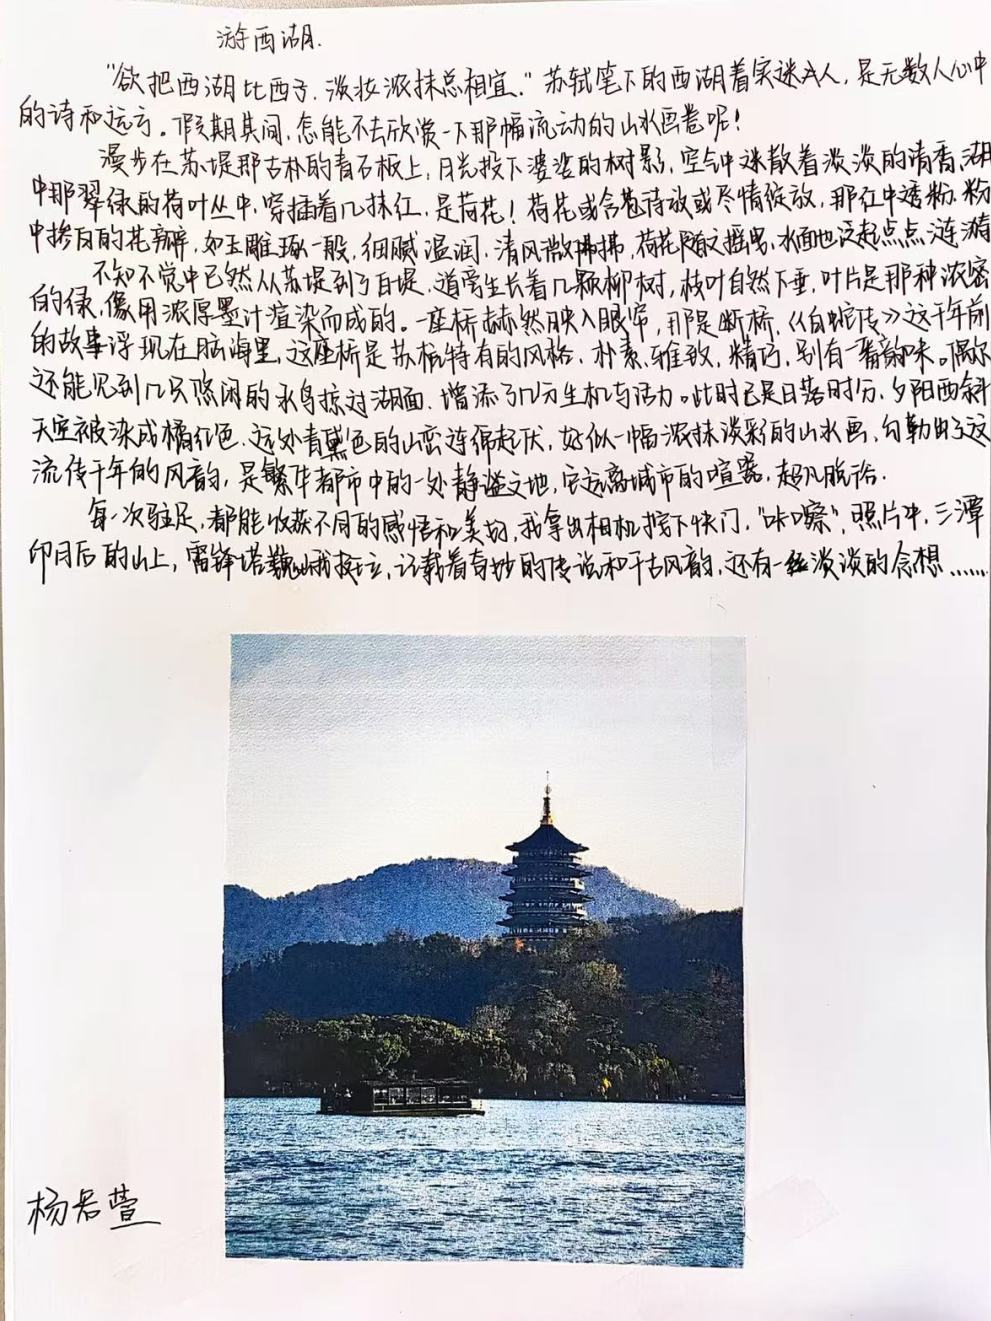 游西湖.
"欲把西湖比西子,淡妆浓抹总相宜."苏轼笔下的西湖着实迷人,是无数人心中
的诗和远方。假期其间,怎能不去欣赏一下那幅流动的山水画卷呢!
漫步在苏堤那古朴的青石板上,月光投下婆娑的树影,空气中迷散着淡淡的清香,湖
中那翠绿的荷叶丛中,穿插着几抹红,是荷花!荷花或含苞待放或尽情绽放,那红中透粉,粉
中掺白的花瓣,如玉雕琢一般,细腻温润.清风微拂拂,荷花随之摇曳,水面也泛起点点涟漪
不知不觉中已然从苏堤到了白堤,道旁生长着几颗柳树,枝叶自然下垂,叶片是那种浓密
的绿,像用浓厚墨汁渲染而成的。一座桥赫然映入眼帘,那是断桥,《白蛇传》这千年前
的故事浮现在脑海里,这座桥是苏杭特有的风格,朴素,雅致,精巧,别有一番韵味。偶尔
还能见到几只悠闲的水鸟掠过湖面,增添了几分生机与活力。此时已是日落时分,夕阳西斜
天空被染成橘红色,远处青黛色的山峦连绵起伏,好似一幅浓抹淡彩的山水画,勾勒出了这
流传千年的风韵,是繁华都市中的一处静谧之地,它远离城市的喧嚣,超凡脱俗.
每一次驻足,都能收获不同的感悟和美好,我拿出相机按下快门,"咔嚓",照片中,三潭
印月后的山上,雷锋塔巍峨挺立,记载着奇妙的传说和千古风韵,还有一丝淡淡的念想......
杨若萱